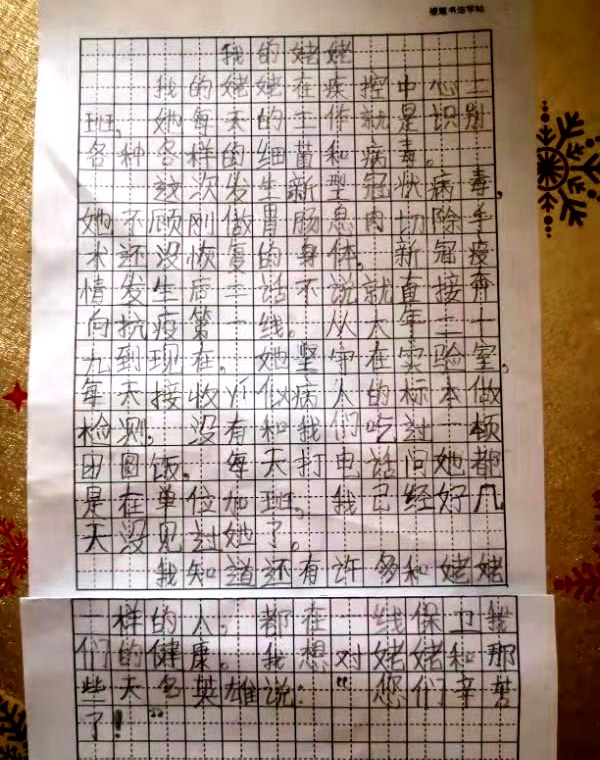 我的姥姥
我的姥姥在疾控中心工
班，她每天的工作就是识别
各种各样的细菌和病毒。
这次发生新型冠状病毒，
她不顾刚做胃肠息肉切除手
术还没恢复的身体，新冠疫
情发生后二话不说就直接奔
向抗疫第一线。从大年二十
九到现在，她坚守在实验室，
每天接收疑似病人的标本做
检测，没有和我们吃过一顿
团圆饭。每天打电话问她都
是在单位加班，我已经好几
天没见过她了。
我知道还有许多和姥姥
一样的人，都在一线保卫我
们的健康。我想对姥姥和那
些大名英雄说："您们辛苦
了！"